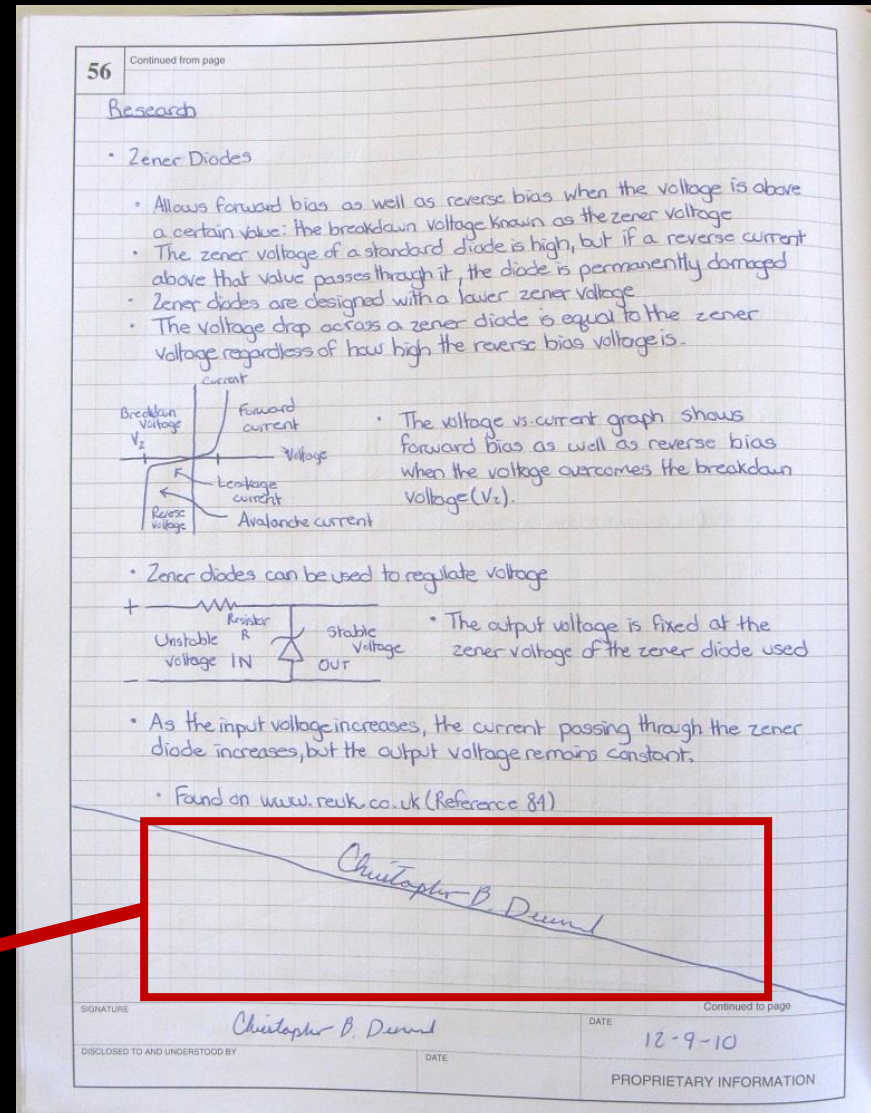 56
Continued from page
Research
· Zener Diodes
· Allows forward bias as well as reverse bias when the voltage is above
a certain value: the breakdown voltage known as the zener voltage
· The zener voltage of a standard diode is high, but if a reverse current
above that value passes through it, the diode is permanently damaged
· Zener diodes are designed with a lower zener voltage
· The voltage drop across a zener diode is equal to the zener
voltage regardless of how high the reverse bias voltage is.
Current
Breakdown
Voltage
Vz
Forward
current
Voltage
Leakage
current
Reverse
Voltage
Avalanche current
· The voltage vs. current graph shows
forward bias as well as reverse bias
when the voltage overcomes the breakdown
voltage (Vz).
· Zener diodes can be used to regulate voltage
+
Resistor
R
Unstable
voltage IN
Stable
Voltage
OUT
· The output voltage is fixed at the
zener voltage of the zener diode used
· As the input voltage increases, the current passing through the zener
diode increases, but the output voltage remains constant.
· Found on www.reuk.co.uk (Reference 84)
Christopher B.
Continued to page
SIGNATURE
Christopher B.
DATE
12-9-10
DISCLOSED TO AND UNDERSTOOD BY
DATE
PROPRIETARY INFORMATION